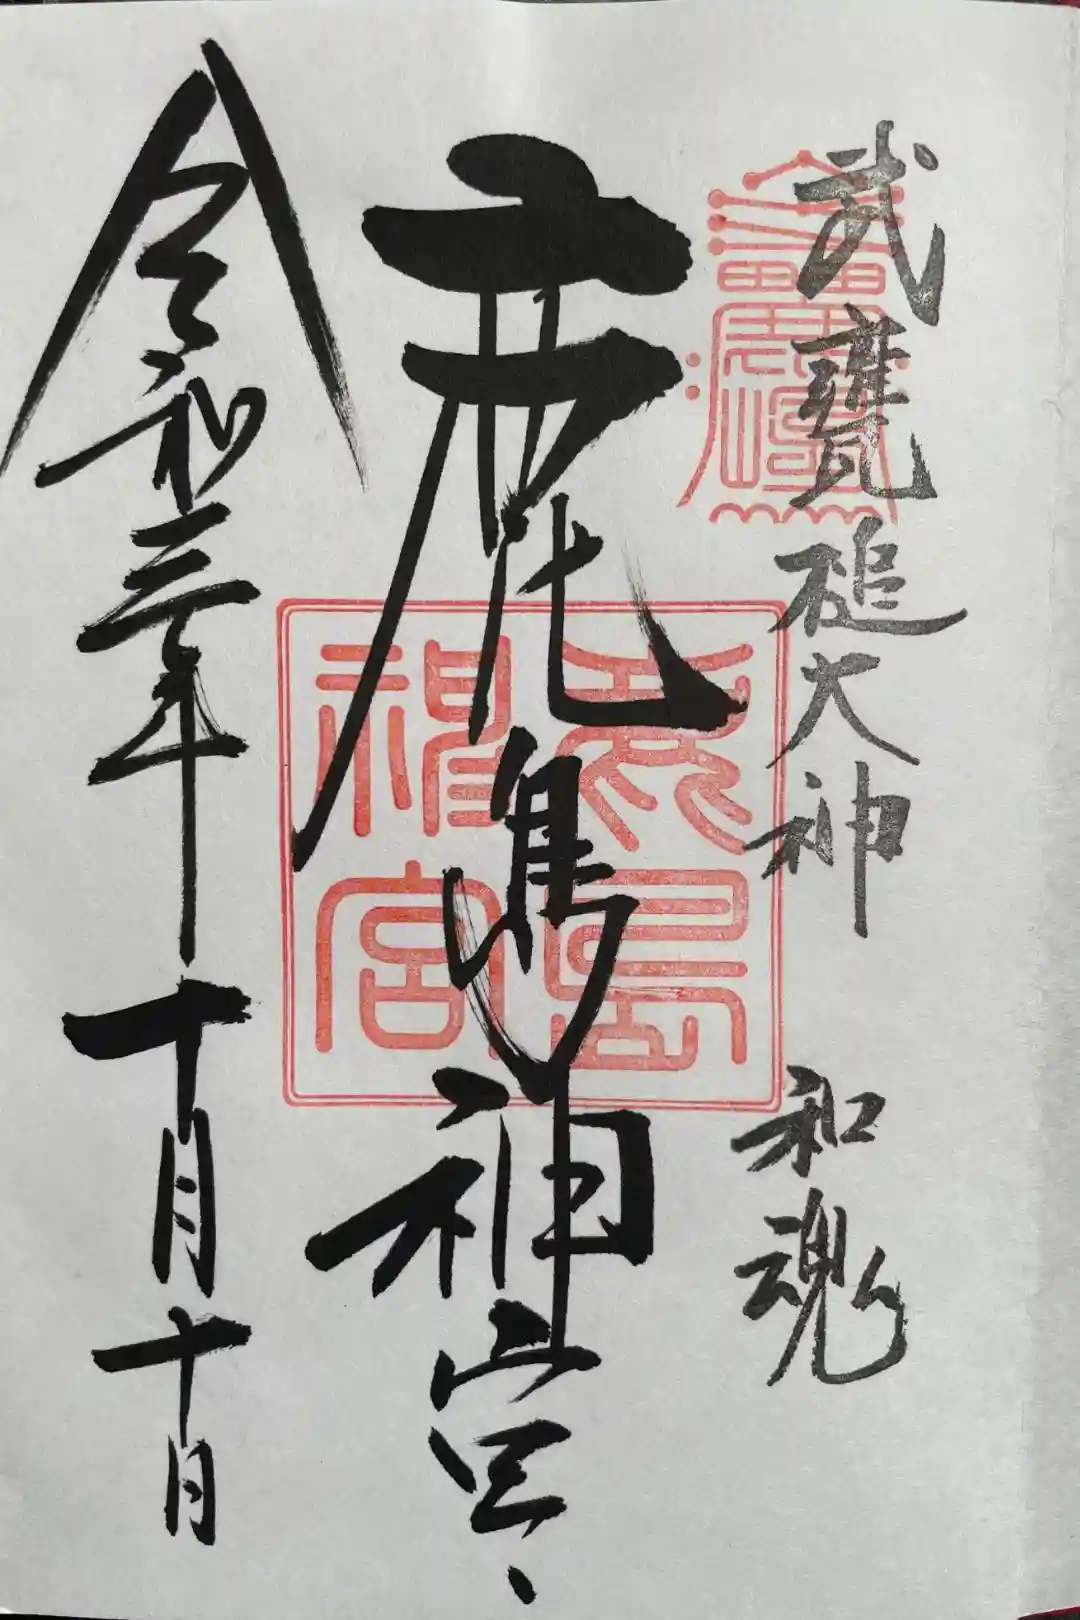 武甕槌大神　和魂
鹿島神宮
鹿島
神宮
令和三年十月十日